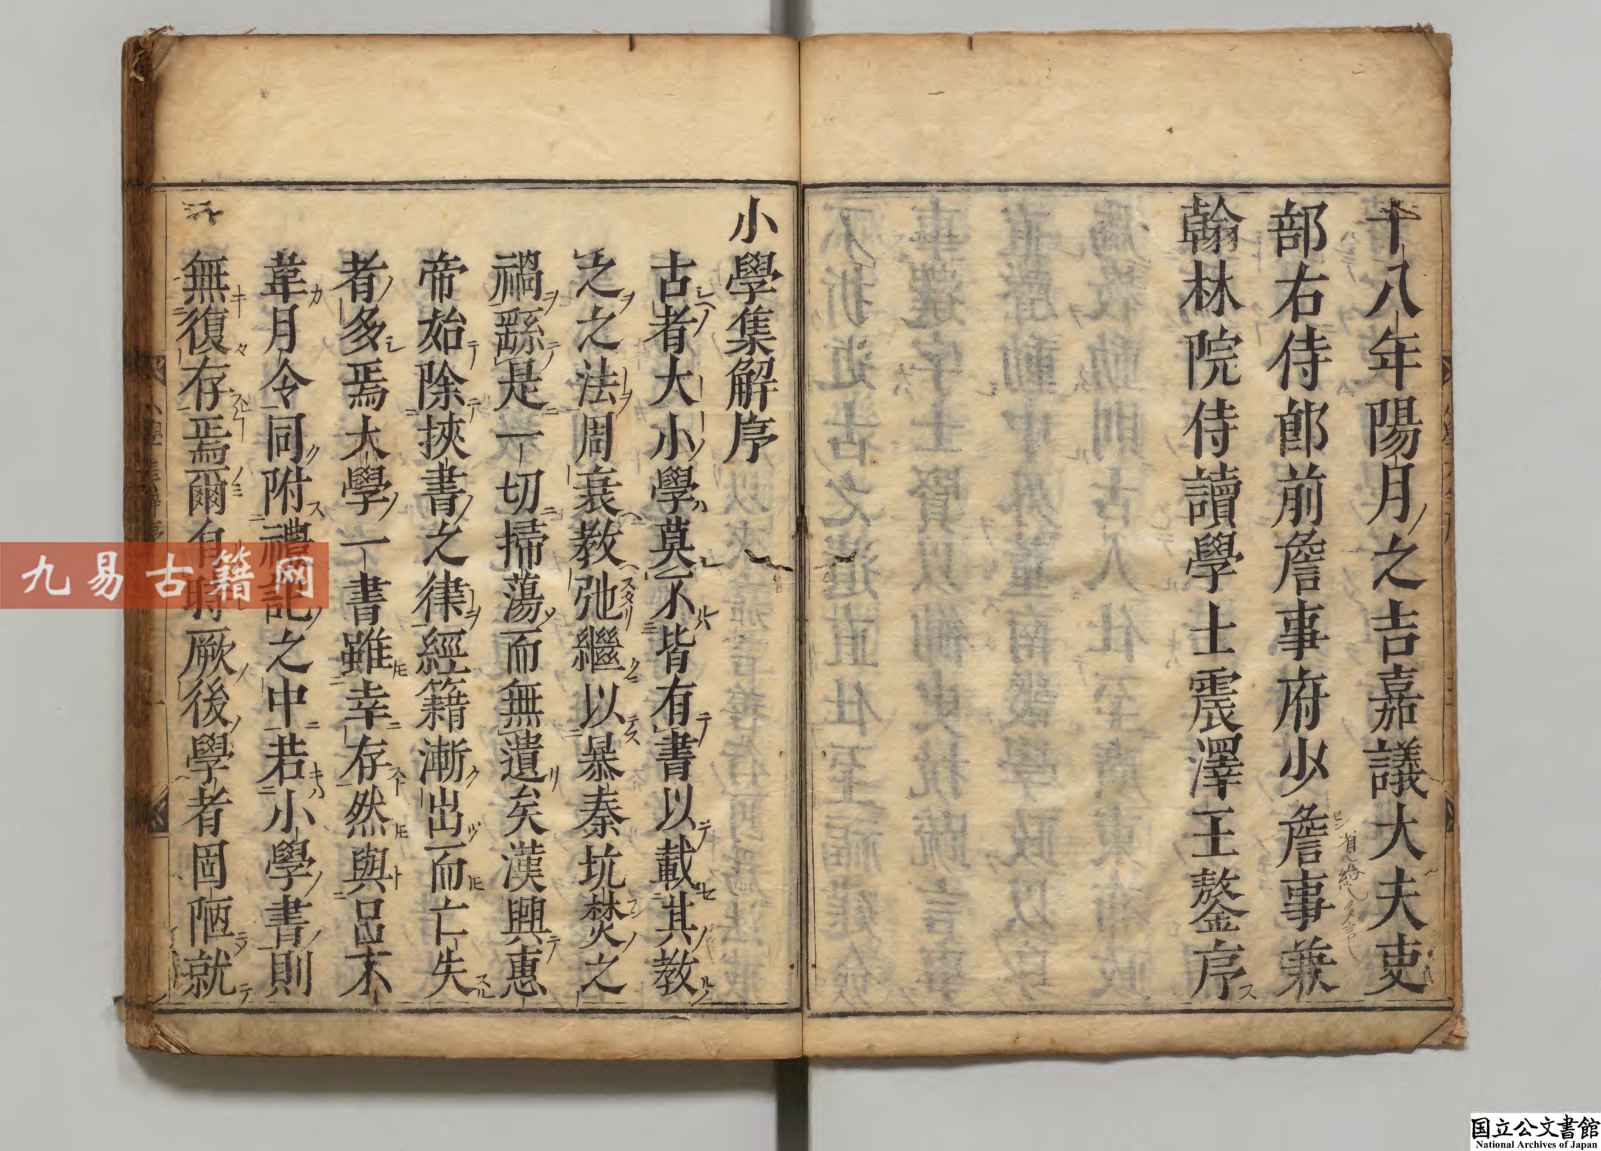 十八年陽月之吉嘉議大夫吏
部右侍郎前詹事府少詹事兼
翰林院侍讀學士震澤王鏊序
小學集解序
古者大小學莫不皆有書以載其教
之之法周衰教弛繼以暴秦坑焚之
禍繇是一切掃蕩而無遺矣漢興惠
帝始除挾書之律經籍漸出而亡失
者多焉大學一書雖幸存然與呂不
韋月令同附禮記之中若小學書則
無復存焉爾自時厥後學者固陋就
九易古籍网
国立公文書館
National Archives of Japan